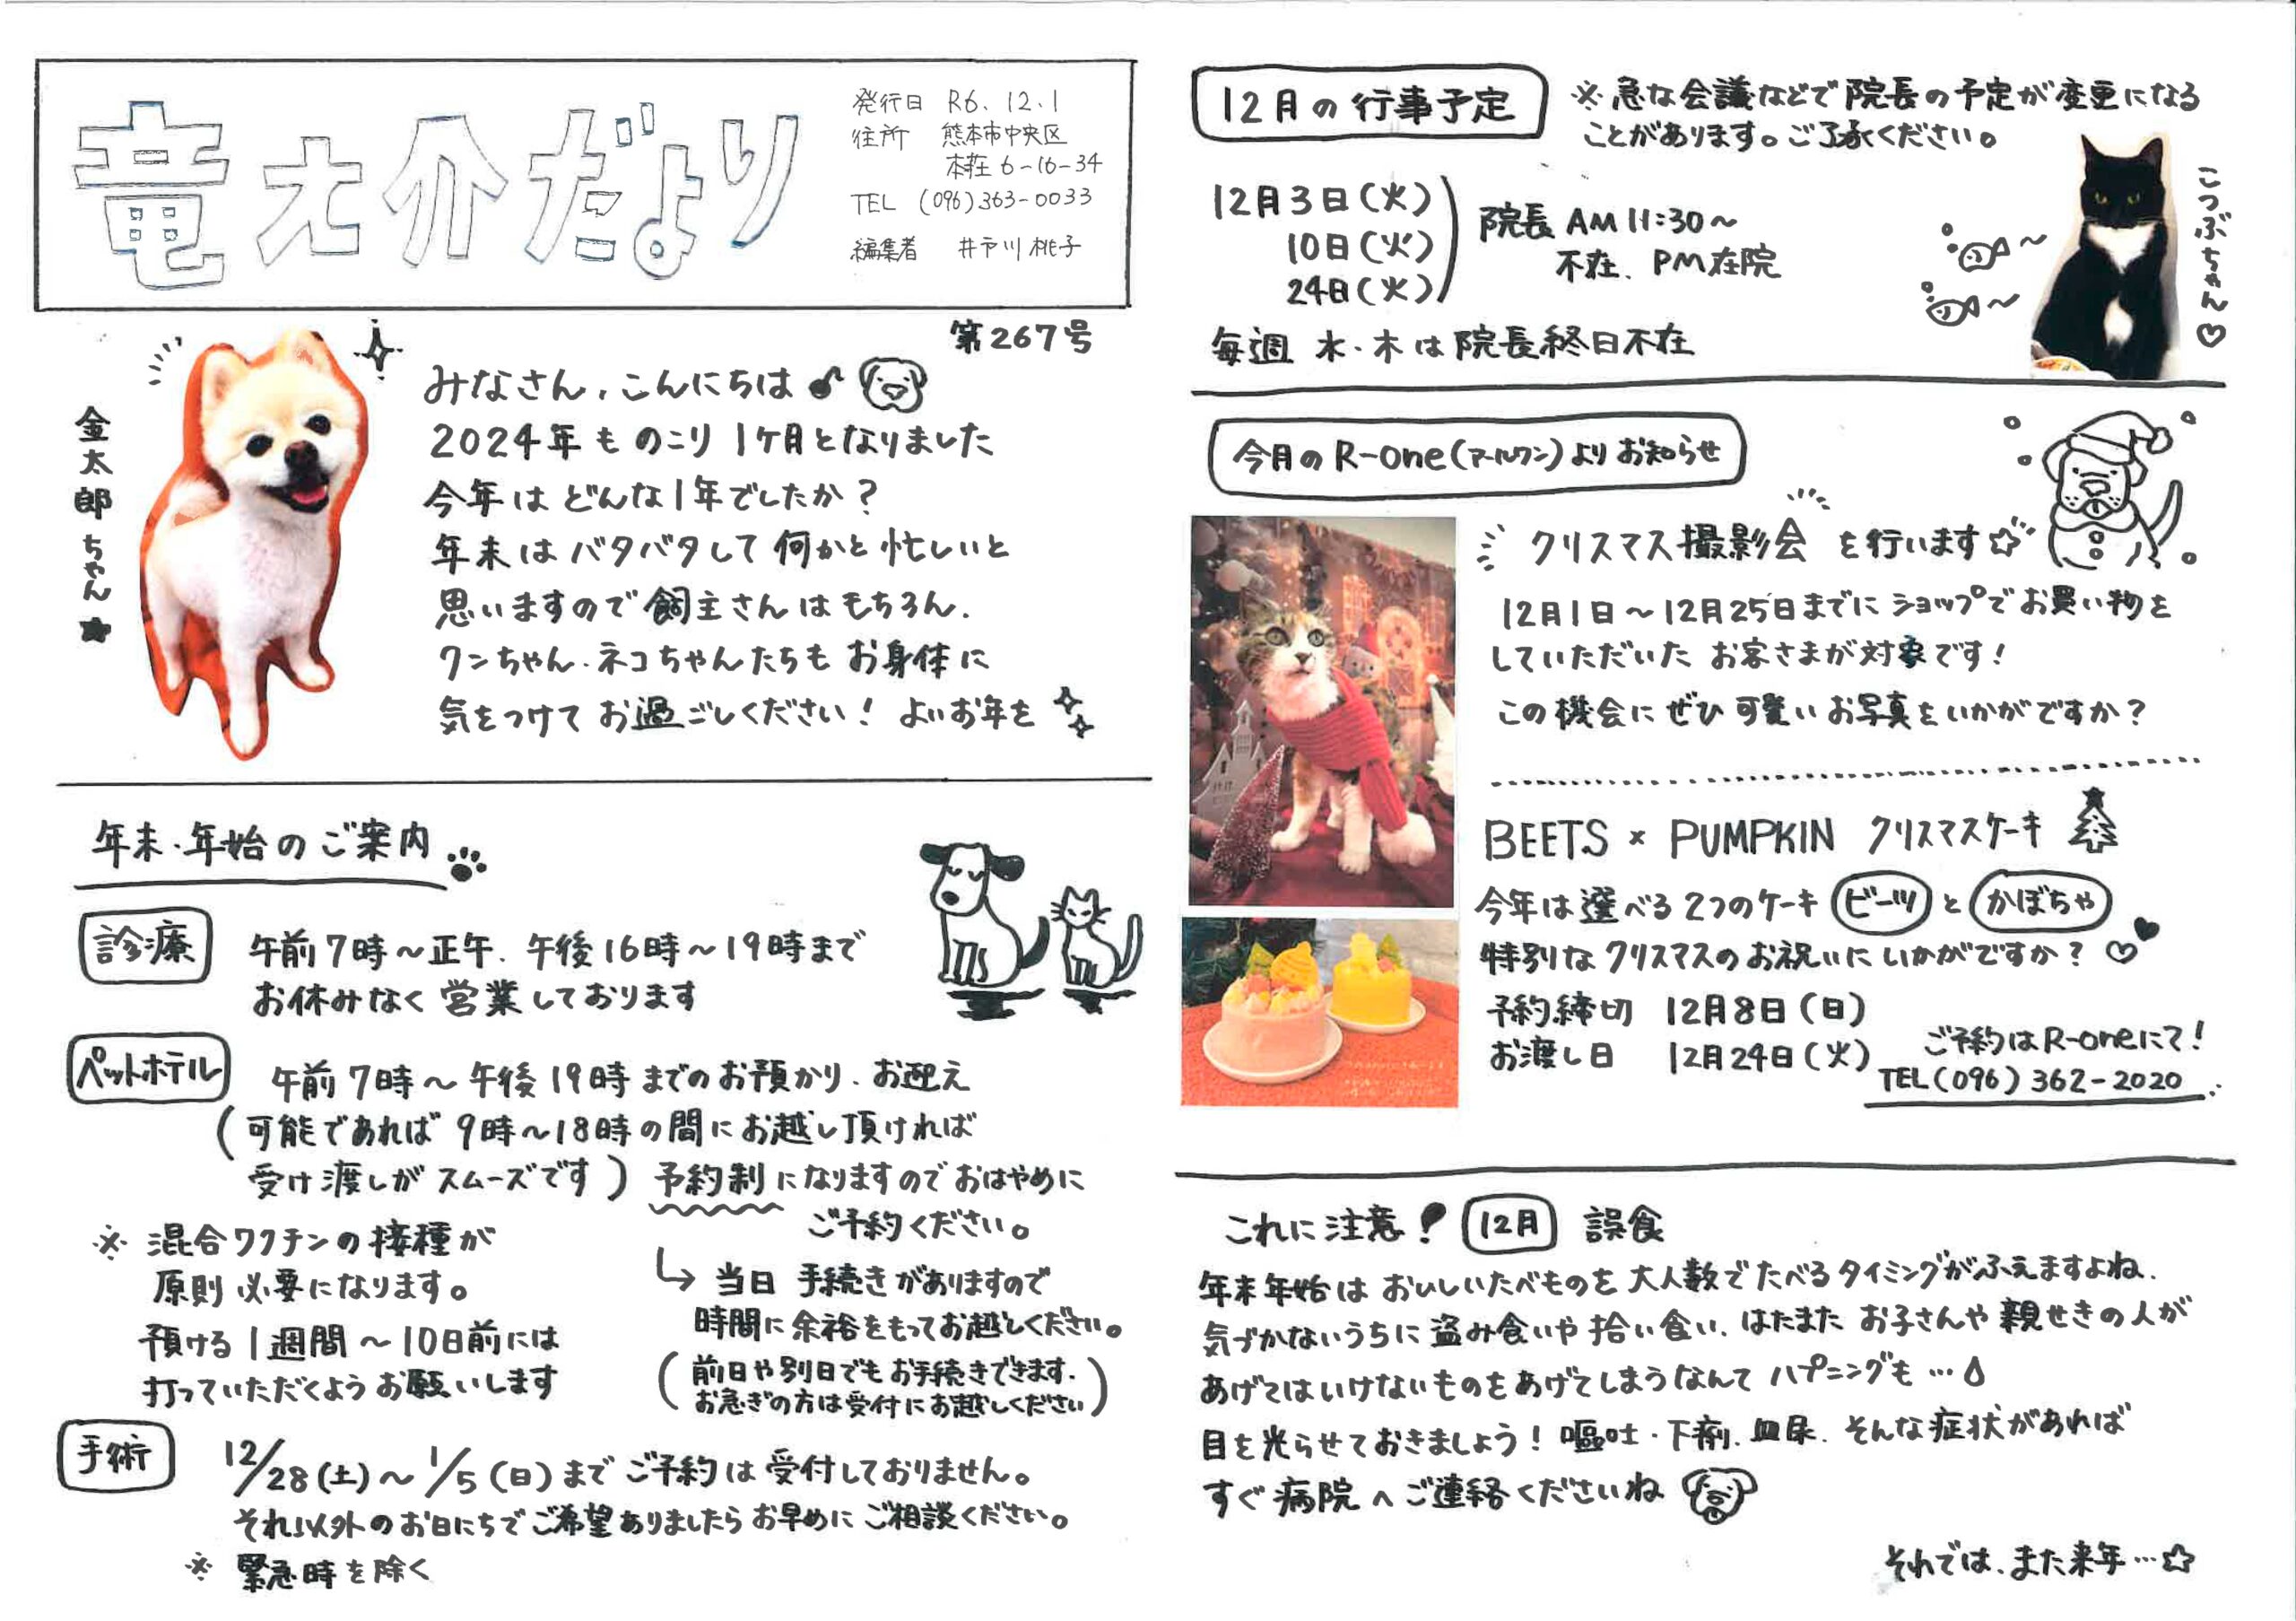 竜之介だより
発行日 R6.12.1
住所 熊本市中央区
本荘6-16-34
TEL (096)363-0033
編集者 井戸川桃子
第267号
金太郎ちゃん★
みなさん、こんにちは♪
2024年ものこり1ヶ月となりました
今年はどんな1年でしたか?
年末はバタバタして何かと忙しいと
思いますので飼主さんはもちろん、
ワンちゃん、ネコちゃんたちもお身体に
気をつけてお過ごしください! よいお年を
年末・年始のご案内
診療
午前7時～正午、午後16時～19時まで
お休みなく営業しております
ペットホテル
午前7時～午後19時までのお預かり、お迎え
(可能であれば9時～18時の間にお越し頂ければ
受け渡しがスムーズです) 予約制になりますのでおはやめに
ご予約ください。
※混合ワクチンの接種が
原則必要になります。
預ける1週間～10日前には
打っていただくようお願いします
↳当日手続きがありますので
時間に余裕をもってお越しください。
(前日や別日でもお手続きできます、
お急ぎの方は受付にお越しください)
手術
12/28(土)～1/5(日)までご予約は受付しておりません。
それ以外のお日にちでご希望ありましたらお早めにご相談ください。
※緊急時を除く
12月の行事予定
※急な会議などで院長の予定が変更になる
ことがあります。ご了承ください。
12月3日(火)
10日(火)
24日(火)
院長AM11:30～
不在、PM在院
毎週 水・木は院長終日不在
こつぶちゃん♡
今月のR-one(アールワン)よりお知らせ
クリスマス撮影会を行います☆
12月1日～12月25日までにショップでお買い物を
していただいたお客さまが対象です!
この機会にぜひ可愛いお写真をいかがですか?
BEETS × PUMPKIN クリスマスケーキ
今年は選べる2つのケーキ ビーツ と かぼちゃ
特別なクリスマスのお祝いにいかがですか?♡♥
予約締切 12月8日(日)
お渡し日 12月24日(火)
ご予約はR-oneにて!
TEL(096)362-2020
これに注意! 12月 誤食
年末年始はおいしいたべものを大人数でたべるタイミングがふえますよね、
気づかないうちに盗み食いや拾い食い、はたまたお子さんや親せきの人が
あげてはいけないものをあげてしまうなんてハプニングも…
目を光らせておきましょう! 嘔吐・下痢、血尿、そんな症状があれば
すぐ病院へご連絡くださいね
それでは、また来年…☆